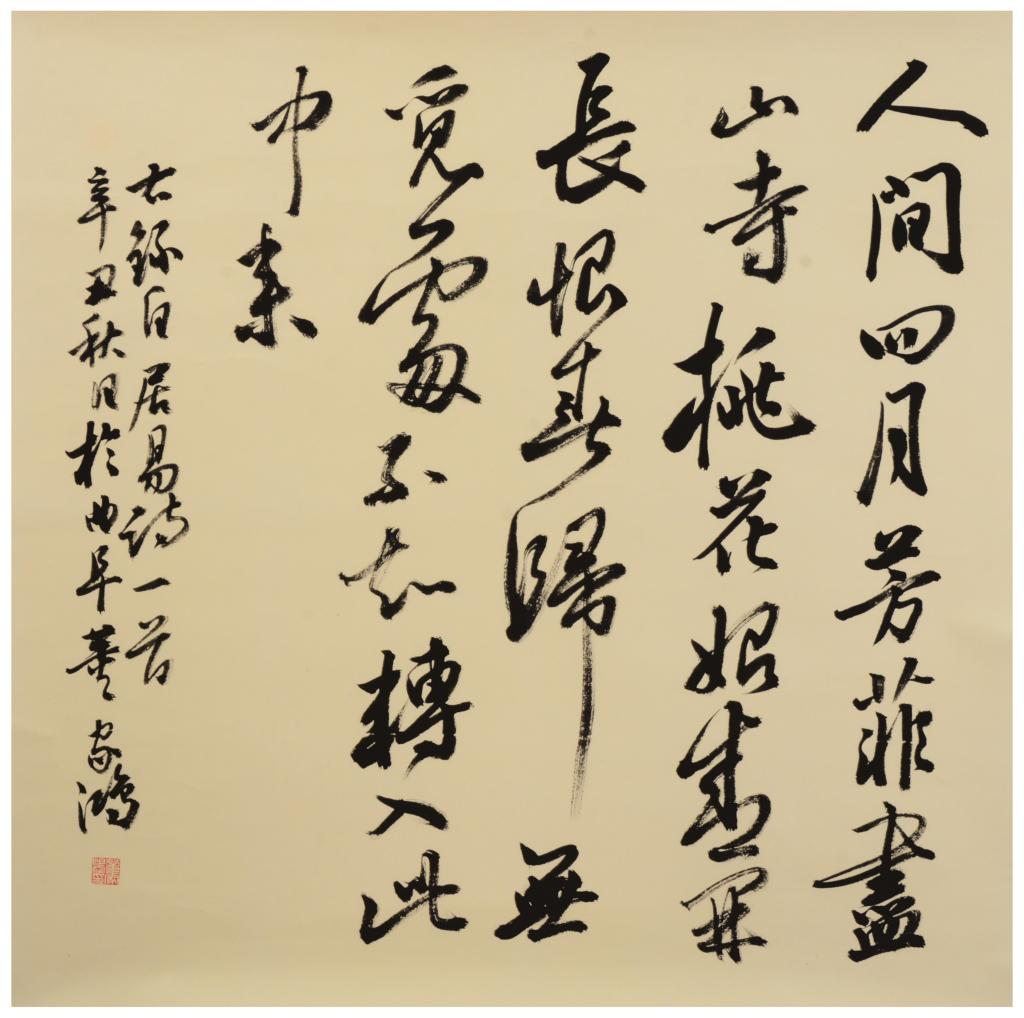 人間四月芳菲盡
山寺桃花始盛開
長恨春歸無
覓處不知轉入此
中来
右錄白居易詩一首
辛丑秋月於曲阜董家鴻